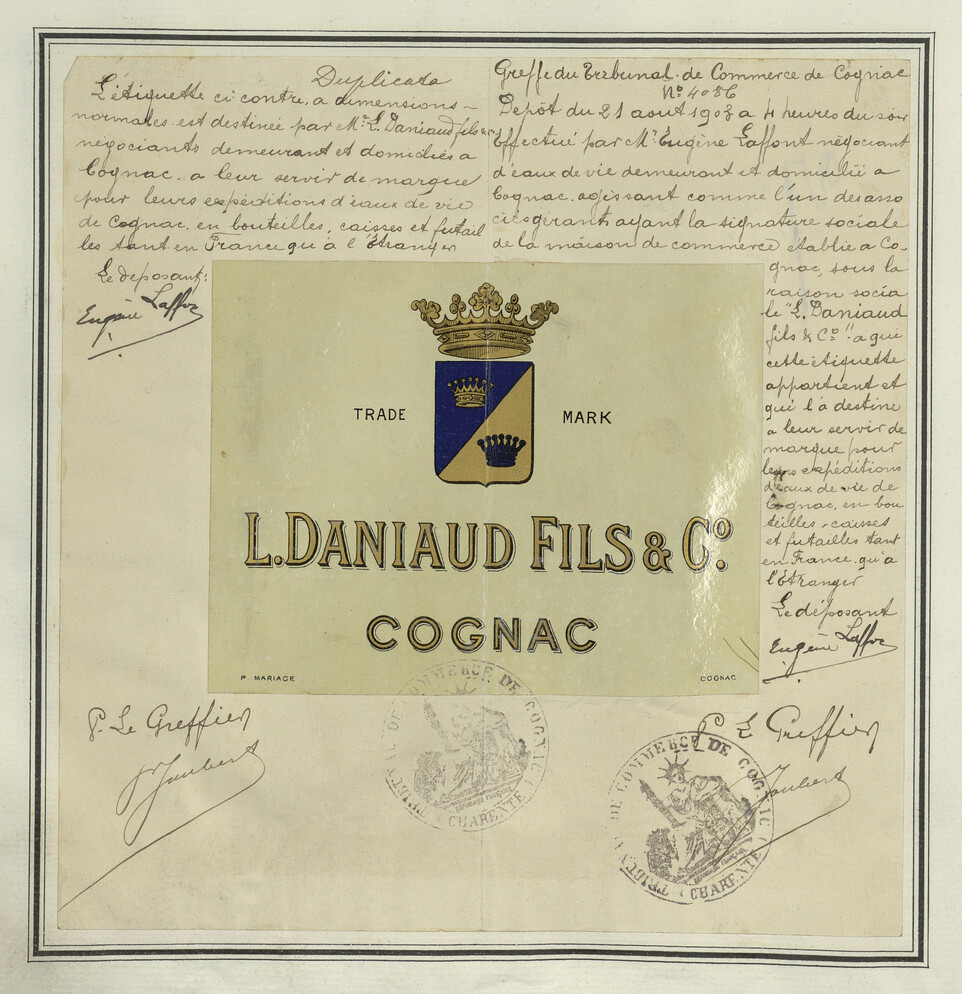 Duplicata
L'étiquette ci contre, a dimensions
normales est destinée par Mrs L. Daniaud fils & Co
négociants demeurant et domiciliés a
Cognac, a leur servir de marque
pour leurs expéditions d'eaux de vie
de Cognac, en bouteilles, caisses et futail
les tant en France qu'à l'Etranger
Le déposant:
Eugène Laffon
Greffe du Tribunal de Commerce de Cognac
No 4056
Depôt du 21 aout 1903 a 4 heures du soir
Effectué par Mr Eugène Laffont négociant
d'eaux de vie demeurant et domicilié a
Cognac, agissant comme l'un des asso
ciés gérants ayant la signature sociale
de la maison de commerce établie a Co-
gnac, sous la
raison socia
le "L. Daniaud
fils & Co" a qui
cette étiquette
appartient et
qui l'a destine
a leur servir de
marque pour
leurs expéditions
d'eaux de vie de
Cognac, en bou
teilles, caisses
et futailles tant
en France qu'à
l'Etranger
Le déposant
Eugène Laffon
TRADE MARK
L. DANIAUD FILS & Co.
COGNAC
P. MARIAGE
COGNAC
P. Le Greffier
Joubert
P. Le Greffier
Joubert
TRIBUNAL DE COMMERCE DE COGNAC (CHARENTE)
TRIBUNAL DE COMMERCE DE COGNAC (CHARENTE)